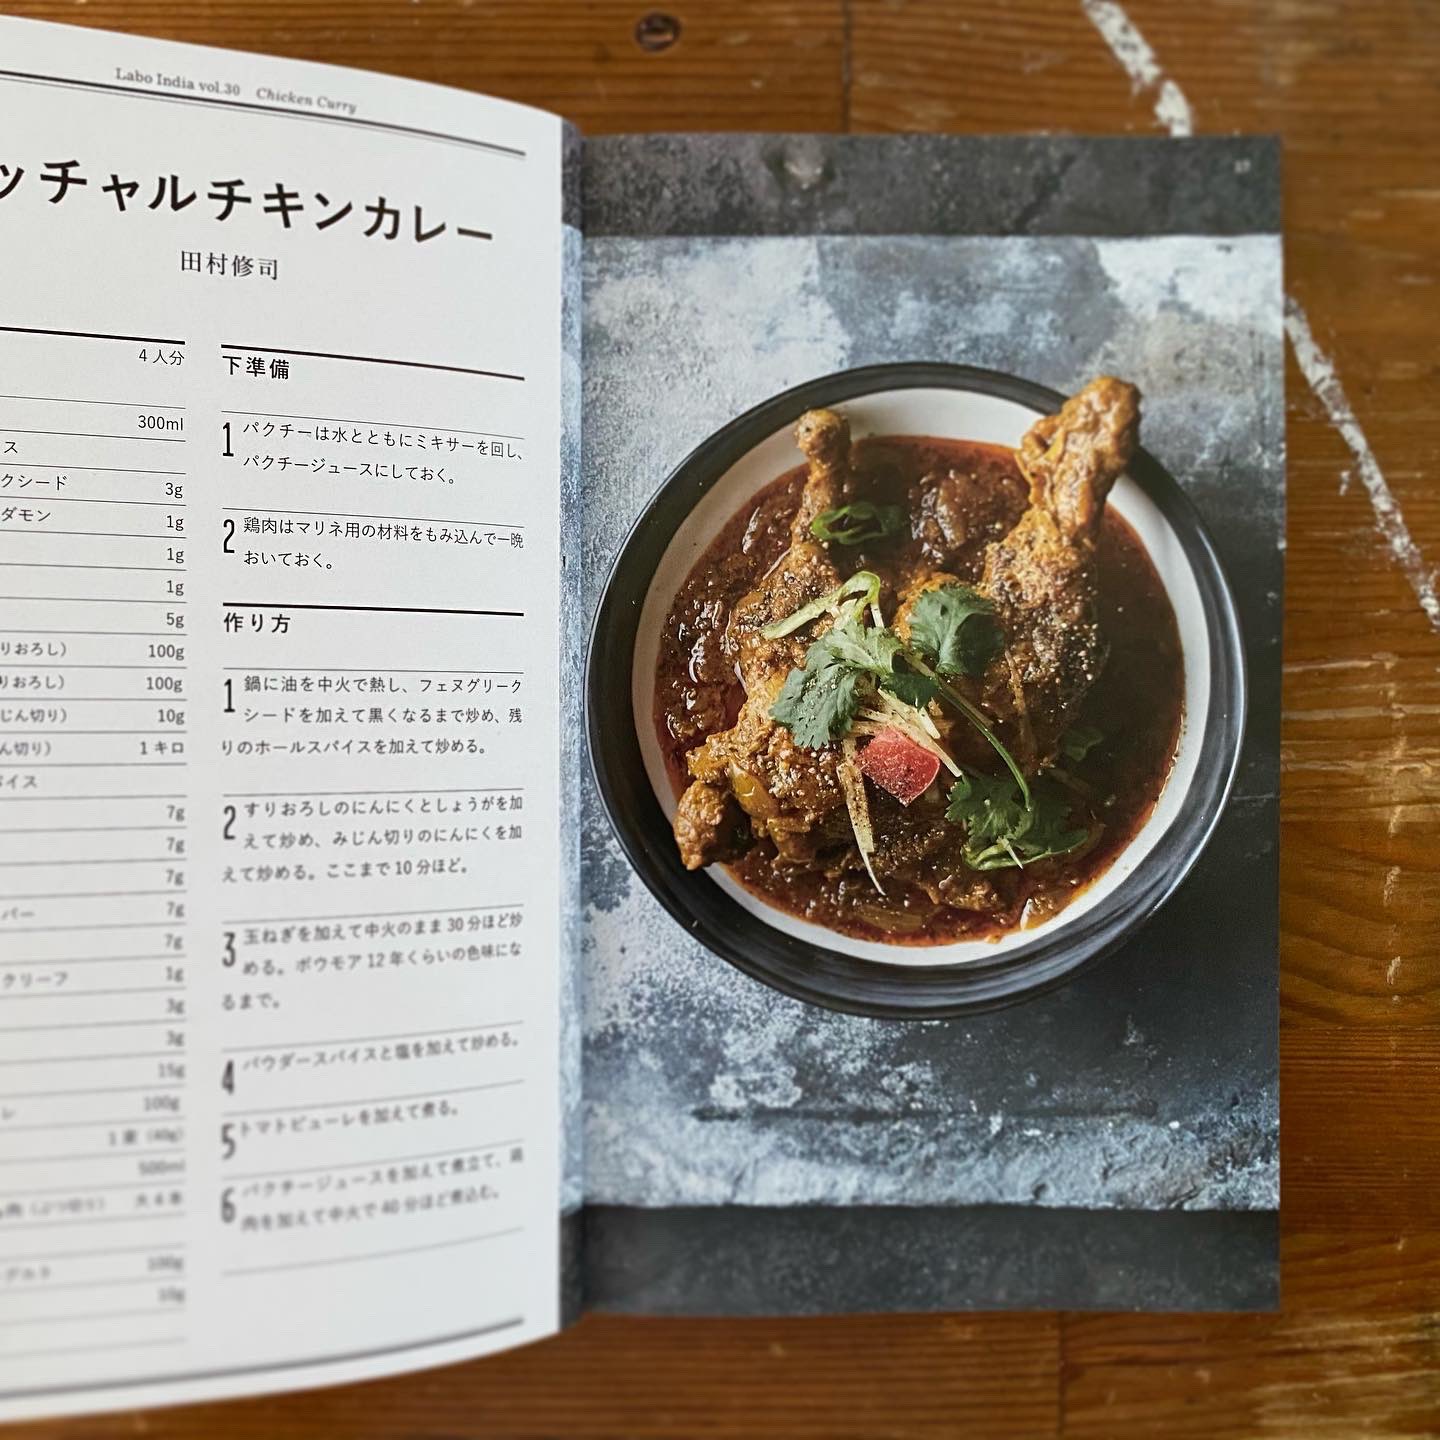 Labo India vol.30 Chicken Curry
ッチャルチキンカレー
田村修司
4人分
300ml
ス
クシード 3g
ダモン 1g
1g
1g
5g
りおろし） 100g
りおろし） 100g
じん切り） 10g
ん切り） 1キロ
パイス
7g
7g
7g
パー 7g
7g
クリーフ 1g
3g
3g
15g
レ 100g
1束（40g）
500ml
肉（ぶつ切り）
グルト 100g
10g
下準備
1 パクチーは水とともにミキサーを回し、
パクチージュースにしておく。
2 鶏肉はマリネ用の材料をもみ込んで一晩
おいておく。
作り方
1 鍋に油を中火で熱し、フェヌグリーク
シードを加えて黒くなるまで炒め、残
りのホールスパイスを加えて炒める。
2 すりおろしのにんにくとしょうがを加
えて炒め、みじん切りのにんにくを加
えて炒める。ここまで10分ほど。
3 玉ねぎを加えて中火のまま30分ほど炒
める。ボウモア12年くらいの色味にな
るまで。
4 パウダースパイスと塩を加えて炒める。
5 トマトピューレを加えて煮る。
6 パクチージュースを加えて煮立て、鶏
肉を加えて中火で40分ほど煮込む。